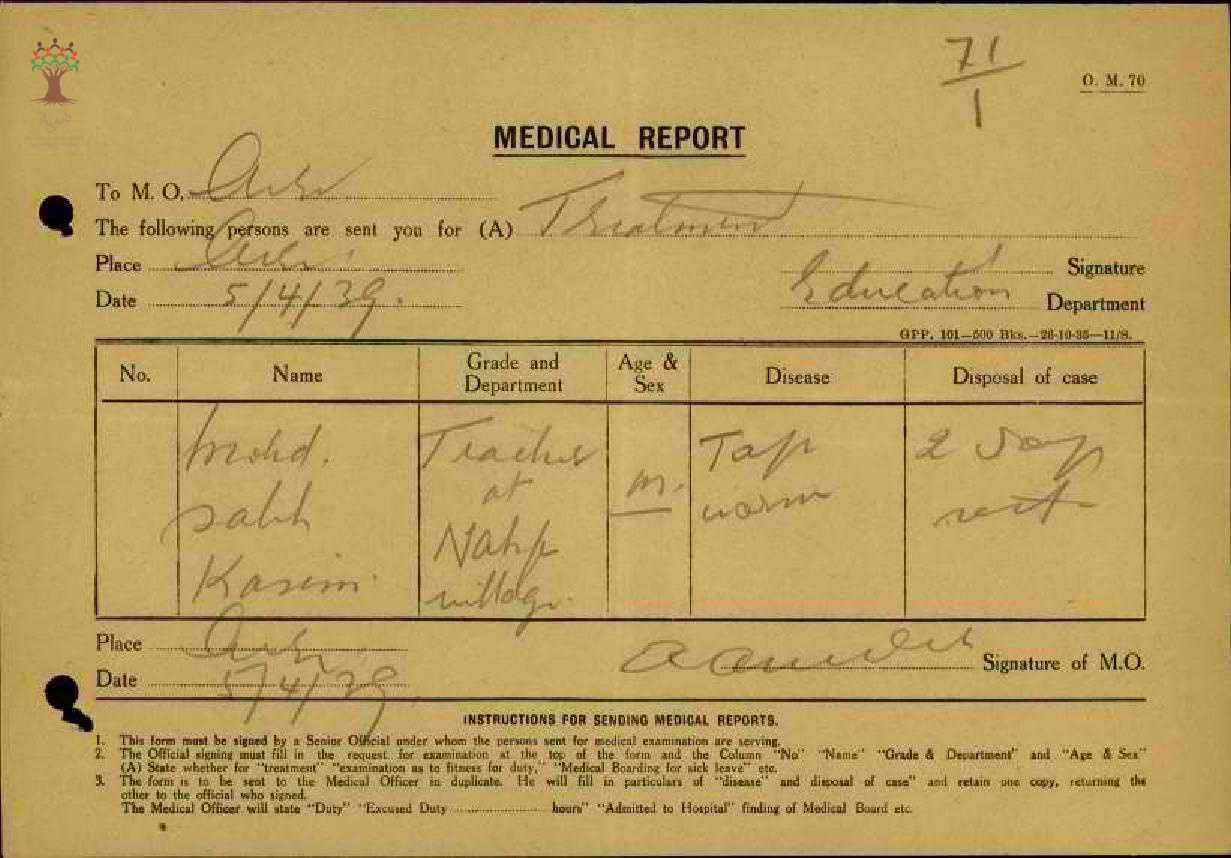 71
1
O. M. 70
MEDICAL REPORT
To M. O.
The following persons are sent you for (A) Treatment
Place
Signature
Date 5/4/39.
Education Department
GPP. 101—500 Bks.—26-10-35—11/8.
No. Name Grade and Department Age & Sex Disease Disposal of case
Mohd. Teacher Tap 2 Days
at m. worm rest
Kasim village
Place
Signature of M.O.
Date 5/4/39.
INSTRUCTIONS FOR SENDING MEDICAL REPORTS.
1. This form must be signed by a Senior Official under whom the persons sent for medical examination are serving.
2. The Official signing must fill in the request for examination at the top of the form and the Column "No" "Name" "Grade & Department" and "Age & Sex"
(A) State whether for "treatment" "examination as to fitness for duty," "Medical Boarding for sick leave" etc.
3. The form is to be sent to the Medical Officer in duplicate. He will fill in particulars of "disease" and disposal of case" and retain one copy, returning the
other to the official who signed.
The Medical Officer will state "Duty" "Excused Duty ........................ hours" "Admitted to Hospital" finding of Medical Board etc.